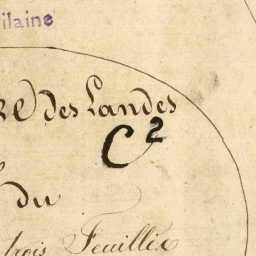 ilaine
re des Landes
C²
du
trois Feuilles